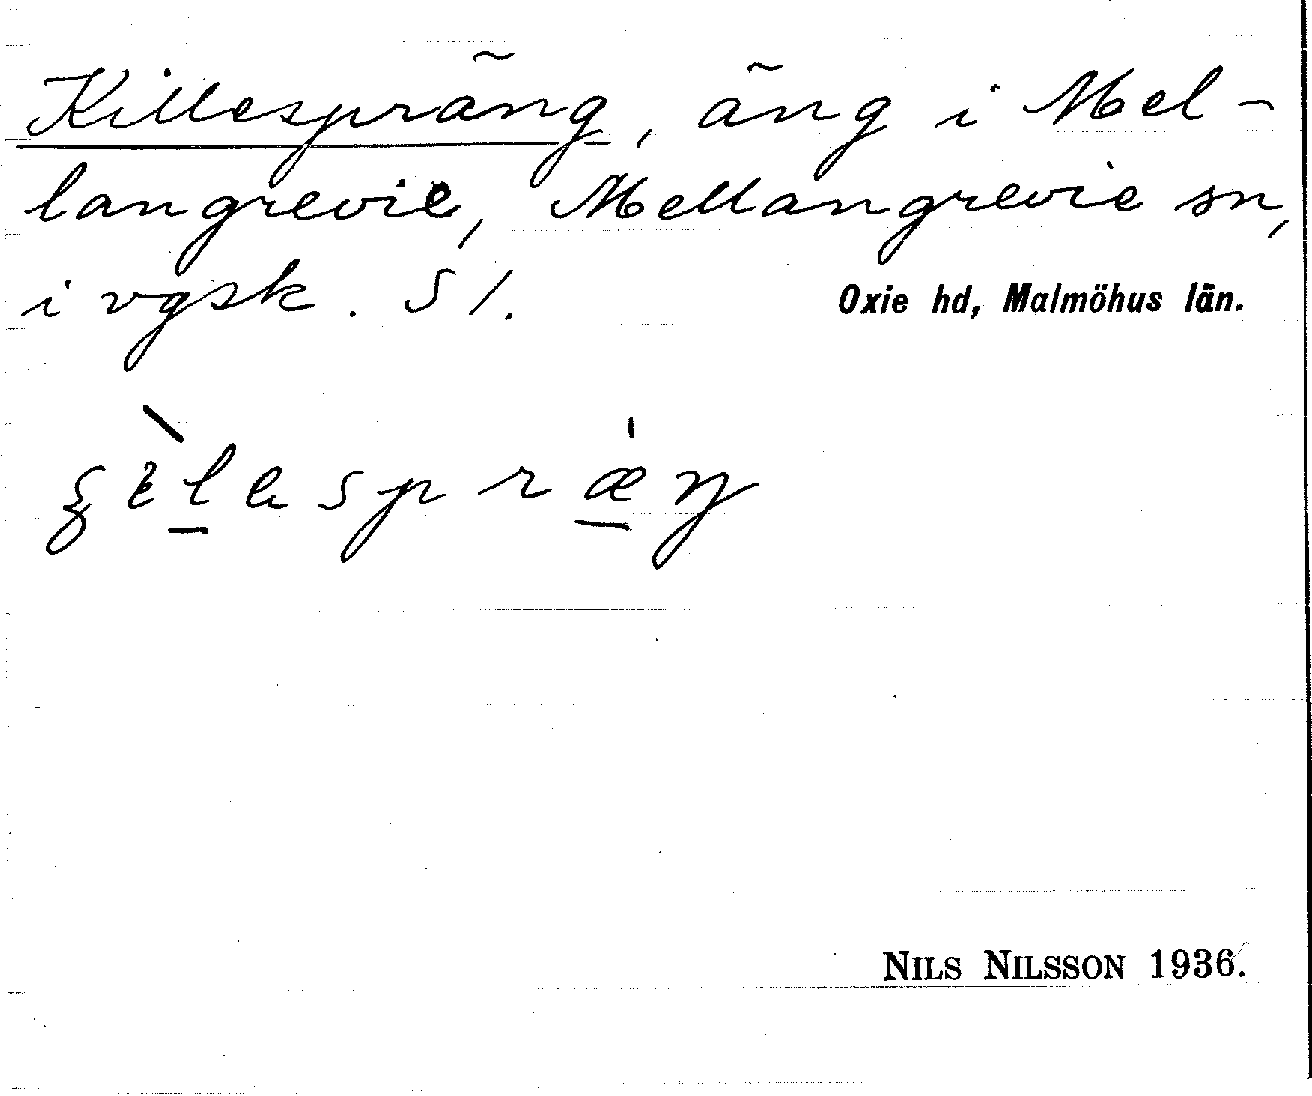 Killespräng, äng i Mel-
langrevie, Mellangrevie sn,
i vgsk. S1.
Oxie hd, Malmöhus län.
NILS NILSSON 1936.